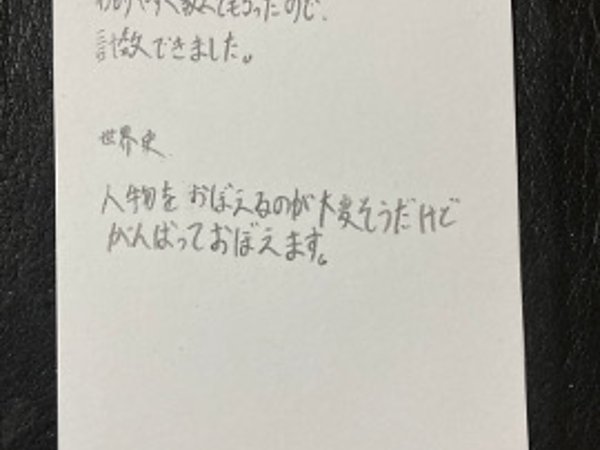 わかりやすく教えてもらったので、
できました。
世界史
人物をおぼえるのが大変そうだけど
がんばっておぼえます。